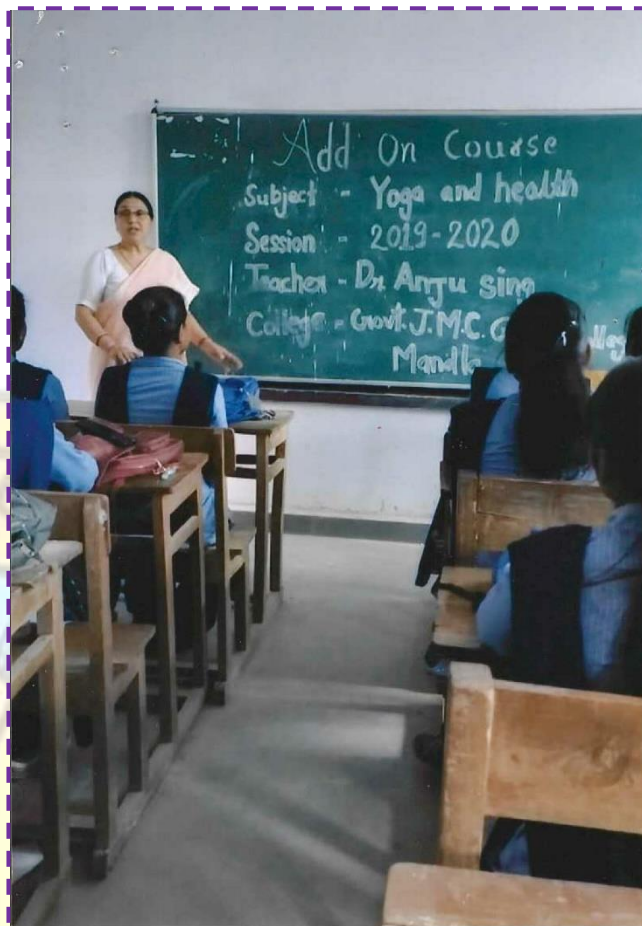 Add On Course
Subject - Yoga and health
Session - 2019-2020
Teacher - Dr Anju sing
College - Govt. J.M.C.
Mandla